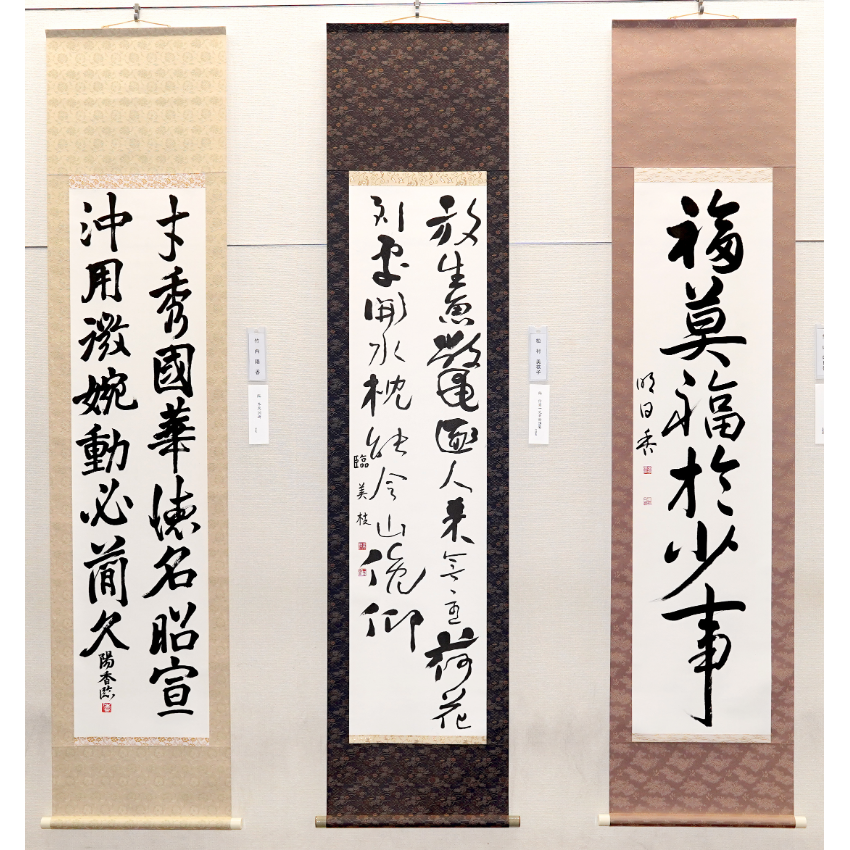 福莫福於少事
明日香
放生魚鼈逐人来無主荷花
到處開水枕能令山俛仰
臨 美枝
松村 美枝子
才秀國華德名昭宣
沖用微婉動必簡久
陽香臨